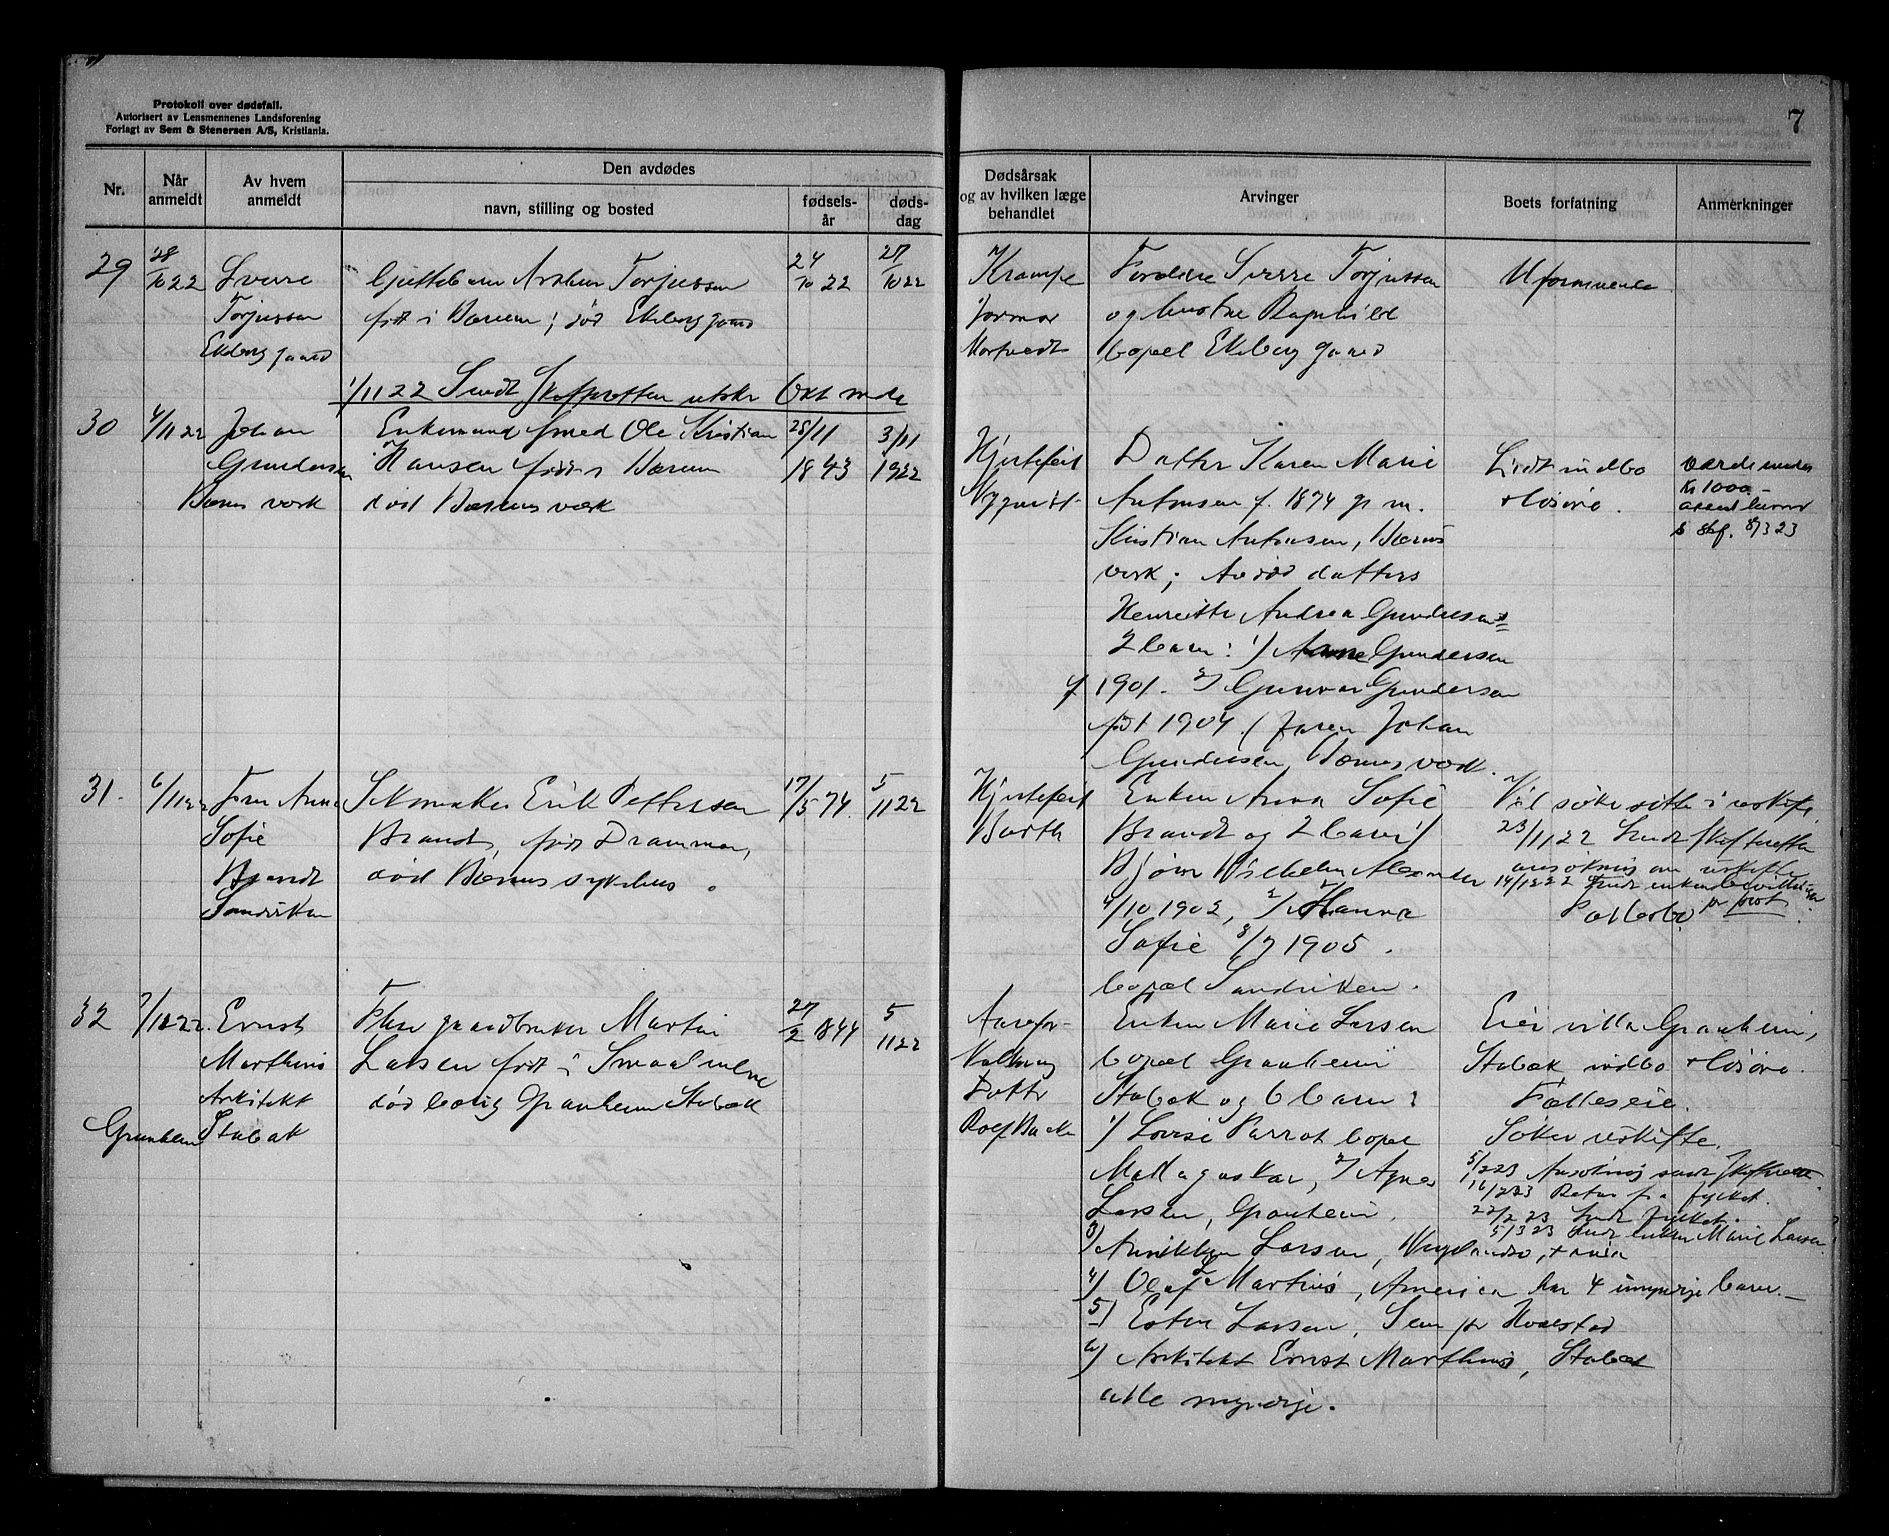 Protokoll over dødsfall.
Autorisert av Lensmennenes Landsforening
Forlagt av Sem & Stenersen A/S, Kristiania.
7
Nr.
Når anmeldt
Av hvem anmeldt
Den avdødes
navn, stilling og bosted
fødselsår
dødsdag
Dødsårsak og av hvilken læge behandlet
Arvinger
Boets forfatning
Anmerkninger
29
28/10 22
Sverre
Torjussen
Ekeberg gaard
Torjussen
født i Bærum; død Ekeberg gaard
24/10 22
27/10 22
Krampe
Fordre Sverre Torjussen
og hustru Ragnhild
bopæl Ekeberg gaard
Uformuende
1/11 22 Sendt Skifteretten utskr Okt mde
30
4/11 22
Johan
Gundersen
Bærums verk
Enkemand smed Ole Kristian
Hansen født i Bærum
død Bærums værk
28/11
1843
3/11
1922
Hjertefeil
Datter Karen Marie
Antonsen f. 1874 g. m.
Kristian Antonsen, Bærums
verk; Avdød datters
Henriette Andrea Gundersens
2 barn: 1) Arne Gundersen
f 1901. 2) Gunvor Gundersen
født 1904 (faren Johan
Gundersen, Bærums verk.
Lidt indbo
+ løsøre.
Værdi under
Kr 1000.-
31.
6/11 22
Fru Anna
Sofie
Brandt
Sandviken
Skomaker Erik Pettersen
Brandt, født Drammen,
død Bærums sykehus.
17/5 74.
5
11 22
Hjertefeil
Barth
Enken Anna Sofie
Brandt og 2 barn 1)
Bjørn Wilhelm Alexander
4/10 1902, 2) Hanna
Sofie 8/7 1905.
bopæl Sandviken.
Vil søke sitte i uskifte.
23/11 22 Sendt skifteretten
ansøkning om uskifte
14/12 22 Sendt enken bevilling
pr post.
Fællesbo.
32
7/11 22.
Ernst
Marthins
Arkitekt
Granheim Stabæk
Fhv gaardbruker Martin
Larsen født i Smaalenene
død bolig Granheim Stabæk
27/2 1844
5
11 22
Aarefor-
kalkning
Doktor
Rolf Backe
Enken Marie Larsen
bopæl Granheim
Stabæk og 6 barn:
1) Lovise Parrot bopæl
Madagaskar, 2) Agnes
Larsen, Granheim.
3) Larsen,
4) Olaf L Martins, Amerika har 4 umyndige barn.
5) Ester Larsen, Sem pr Hvalstad
6) Arkitekt Ernst Marthins, Stabæk
alle myndige.
Eier villa Granheim,
Stabæk indbo + løsøre.
Fælleseie.
Søker uskifte.
5/2 23 Ansøkning sendt Skifteretten.
16/2 23 Retur fra fylket.
22/2 23 Sendt fylket.
5/3 23 Sendt enken Marie Larsen